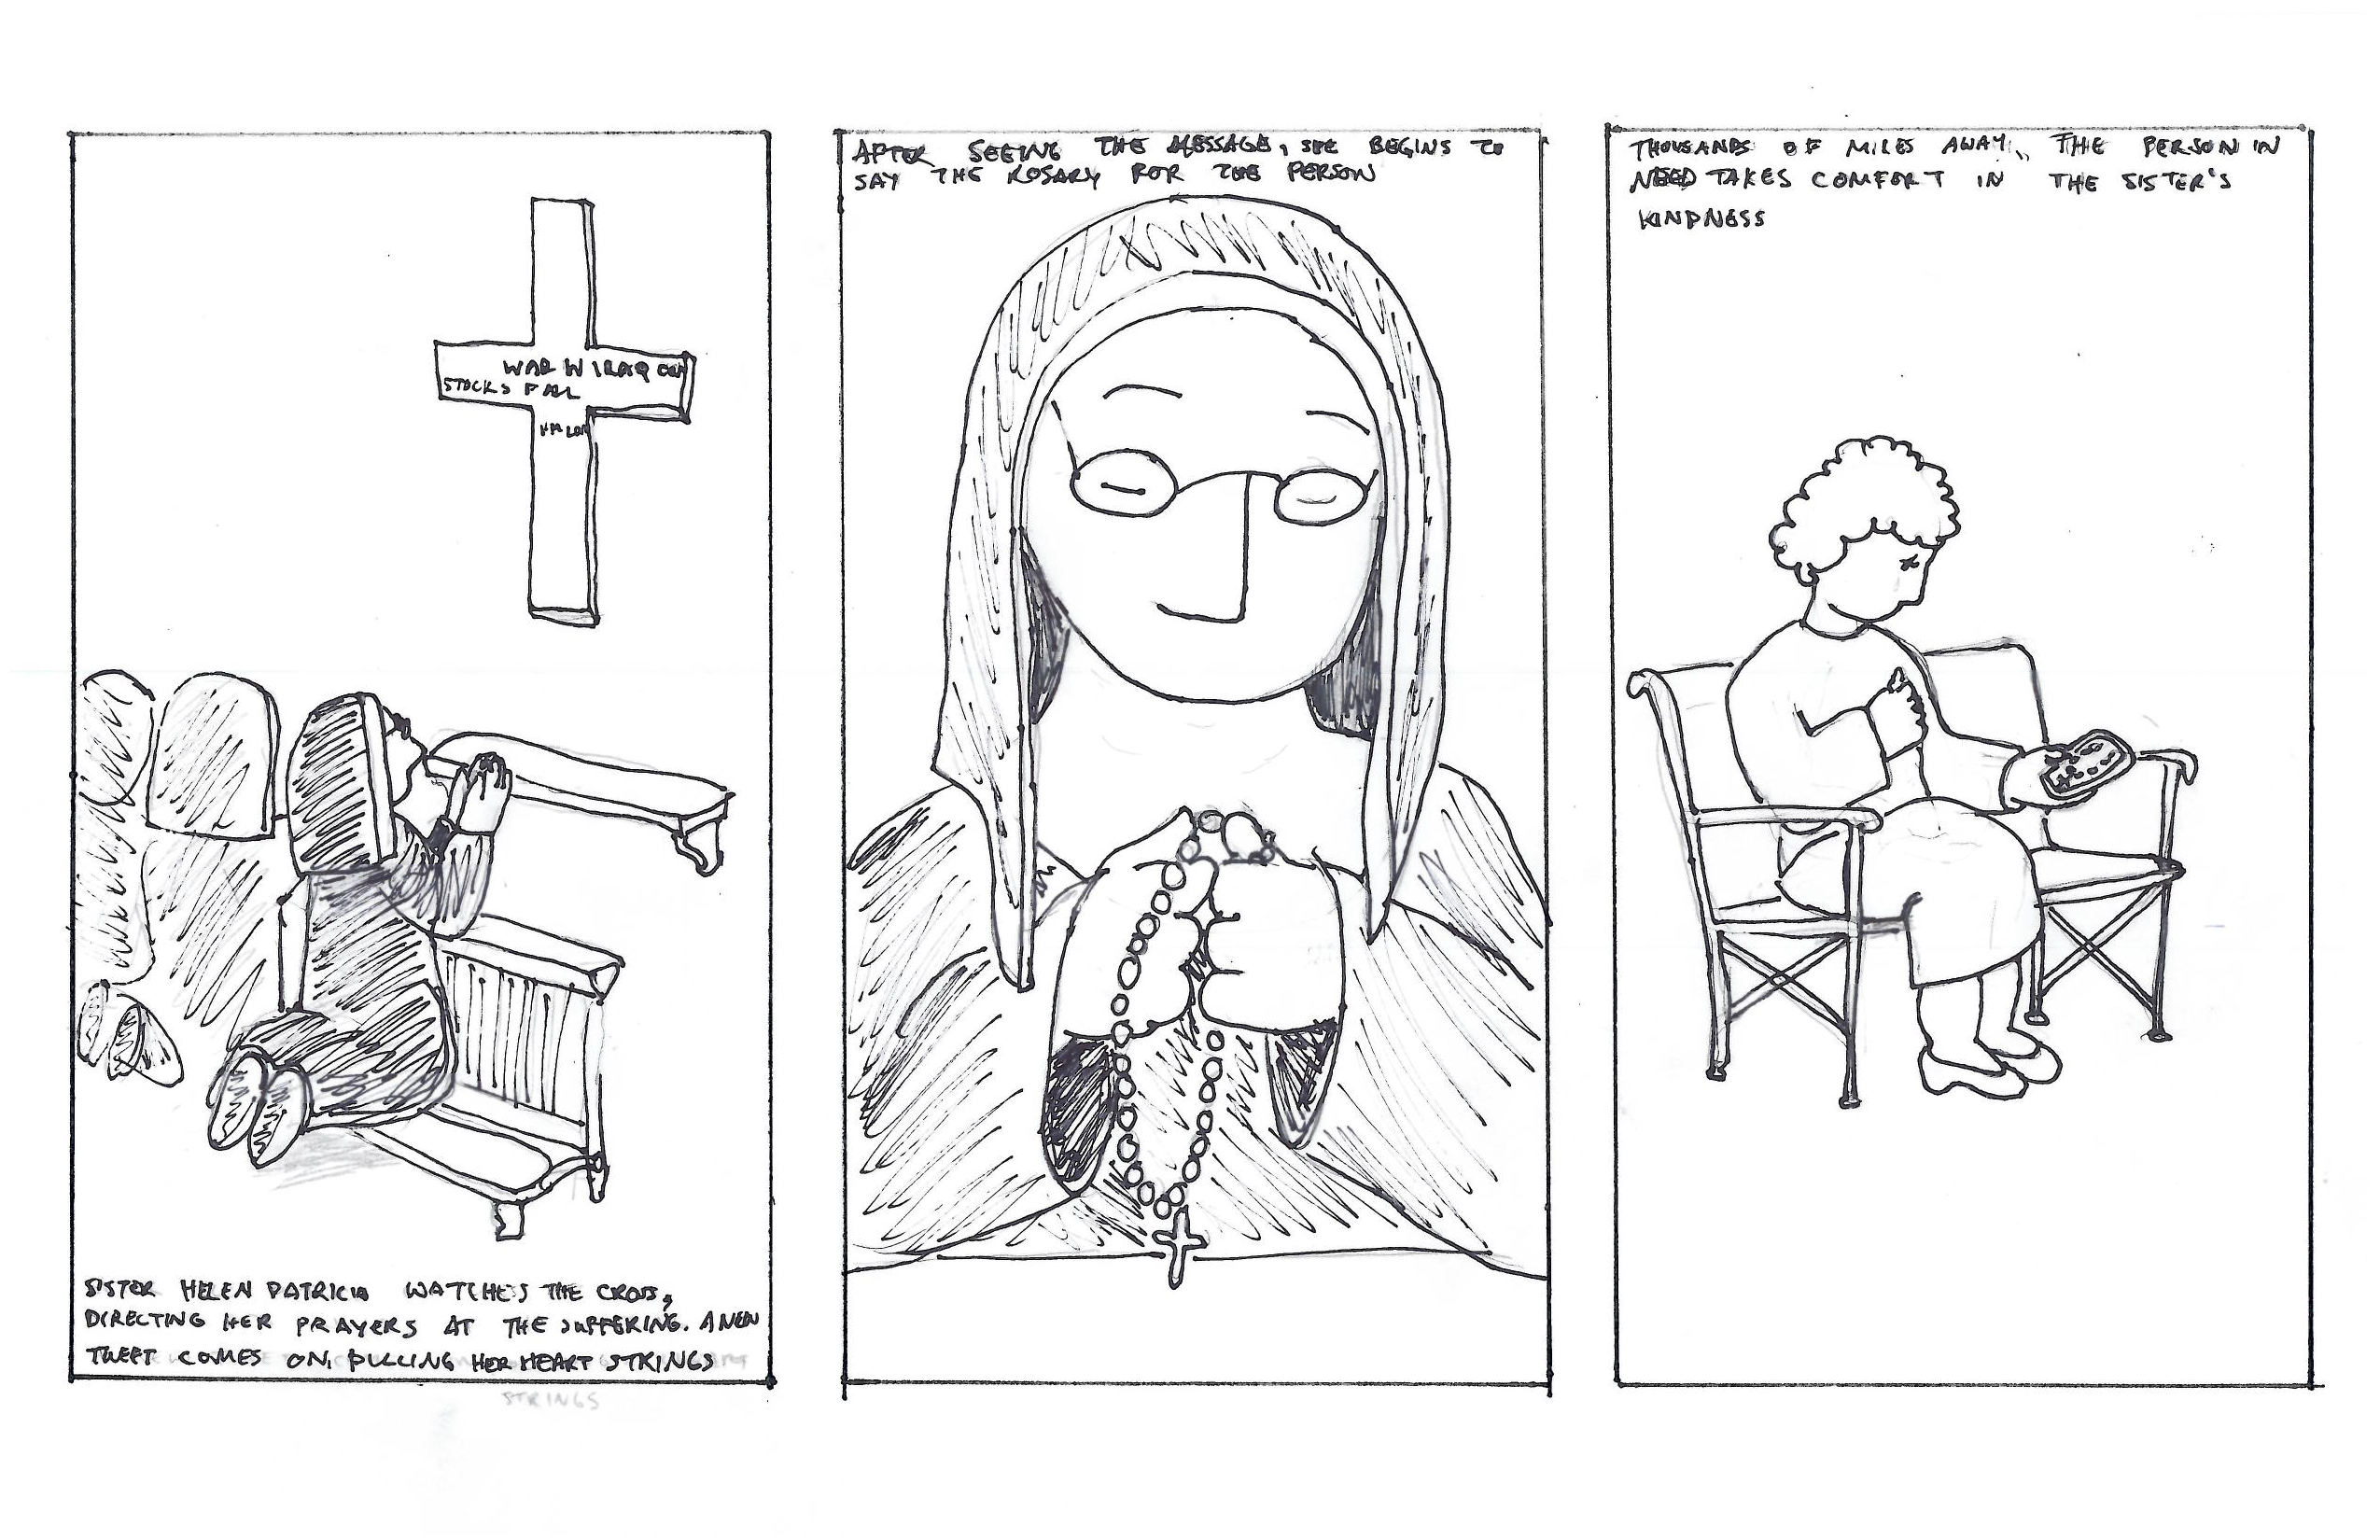 WAR W IRAQ
STOCKS FALL
SISTER HELEN PATRICIA WATCHES THE CROSS,
DIRECTING HER PRAYERS AT THE SUFFERING. A NEW
TWEET COMES ON, PULLING HER HEART STRINGS
STRINGS
AFTER SEEING THE MESSAGE, SHE BEGINS TO
SAY THE ROSARY FOR THE PERSON
THOUSANDS OF MILES AWAY, THE PERSON IN
NEED TAKES COMFORT IN THE SISTER'S
KINDNESS